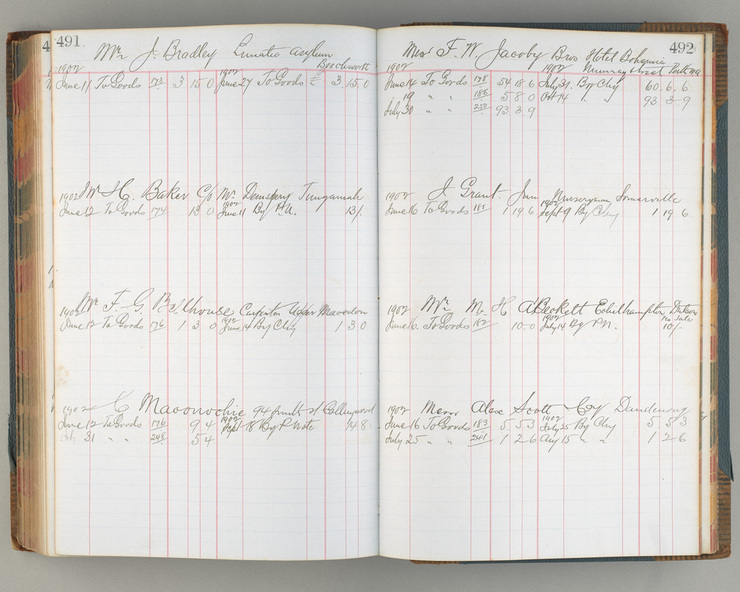 491
Mr J. Bradley Lunatic Asylum
Beechworth
1902 1902
June 11 To Goods 173 3 15 0 June 27 To Goods 3 15 0
1902 Mr H. Baker C/o Mr Dempsey Tungamah
1902
June 12 To Goods 174 13 0 June 11 By P.N. 13/-
1902 Mr F. G. Bellhouse Carpenter Upper Macedon
1902
June 12 To Goods 176 1 3 0 June 14 By Chq 1 3 0
1902 C Maconochie 94 Smith St Collingwood
1902
June 12 To Goods 176 9 4 Sept 18 By P Note 14 8
31 " " 248 5 4
492
Mess F. W. Jacoby Bros Hotel Bohemia
Murray Street Perth WA
1902 1902
June 14 To Goods 178 54 18 6 July 31 By Chq 60 . 6 . 6
19 " " 188 5 8 0 Oct 14 " 93 3 9
July 30 " " 93 3 9
1902 J. Grant Jun Nurseryman Somerville
1902
June 16 To Goods 181 1 19 6 Sept 9 By Chq 1 19 6
1902 Mr M. H. ABeckett
1902
June 16 To Goods 182 10-0 July 14 By P.N. 10/-
1902 Messrs Alex Scott & Coy Dandenong
1902
June 16 To Goods 183 5 5 3 July 25 By Chq 5 5 3
July 25 " " 241 1 2 6 Aug 15 " " 1 2 6